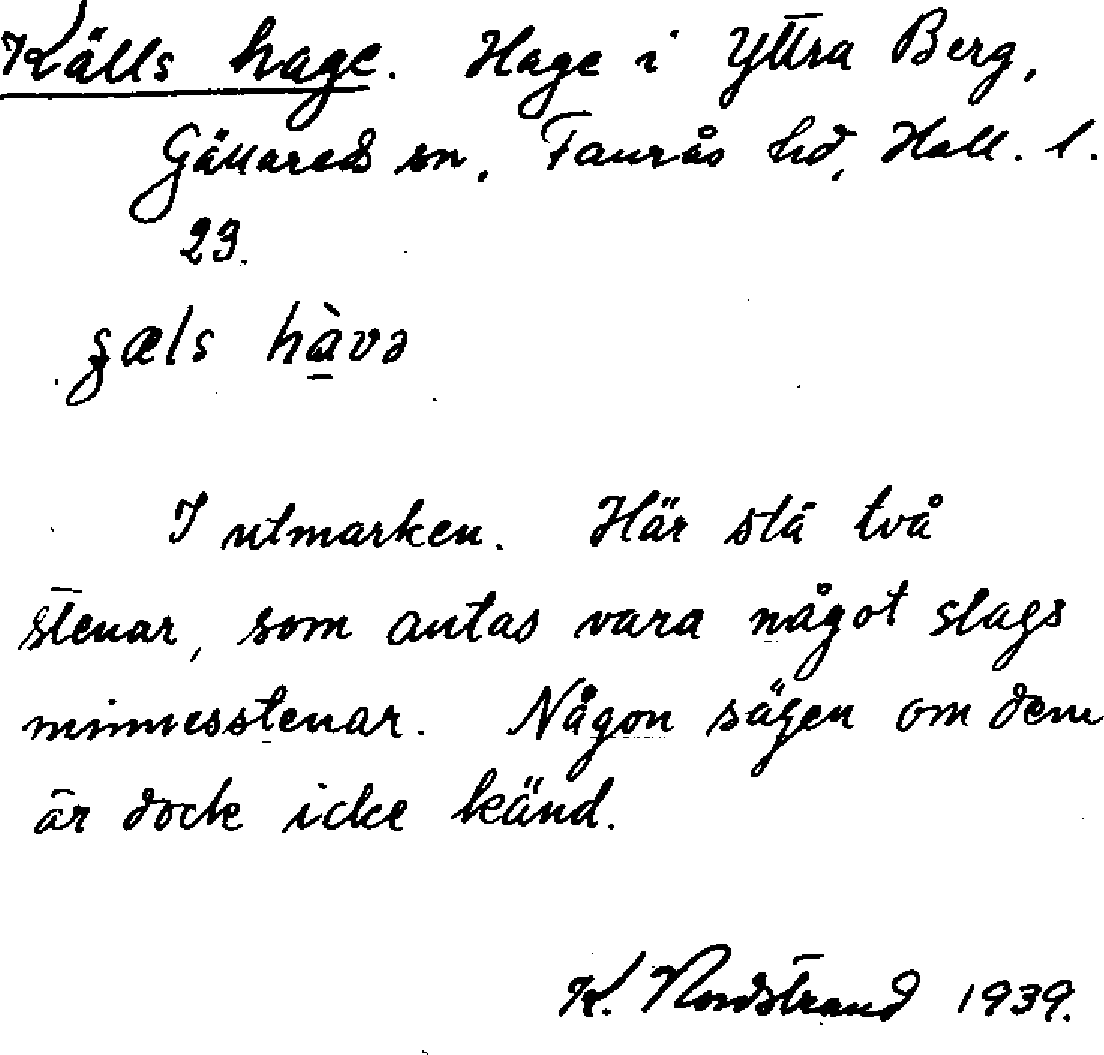 Källs hage. Hage i Yttra Berg,
Gällareds sn, Faurås hd, Hall. l.
23.
ʂæls hàvə
I utmarken. Här stå två
stenar, som antas vara något slags
minnesstenar. Någon sägen om dem
är dock icke känd.
K. Nordstrand 1939.